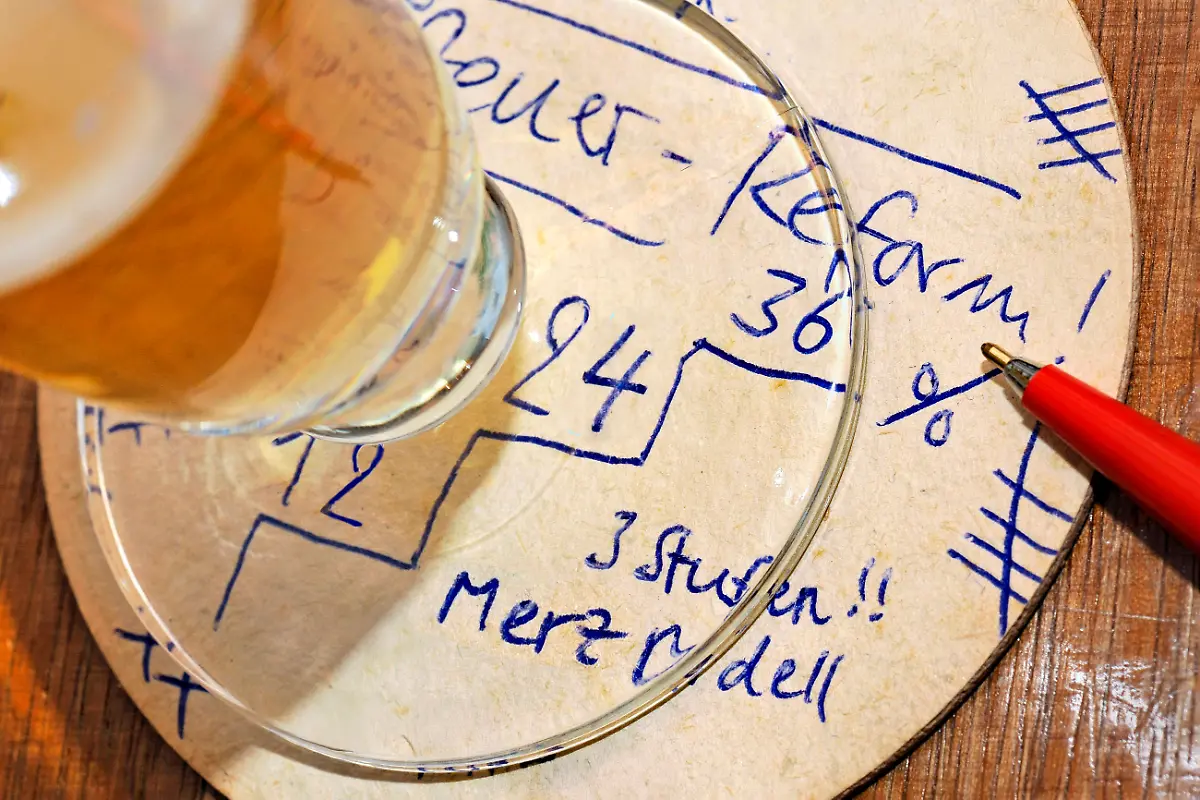 - Reform !
12 24 36 %
3 Stufen!!
Merz Modell